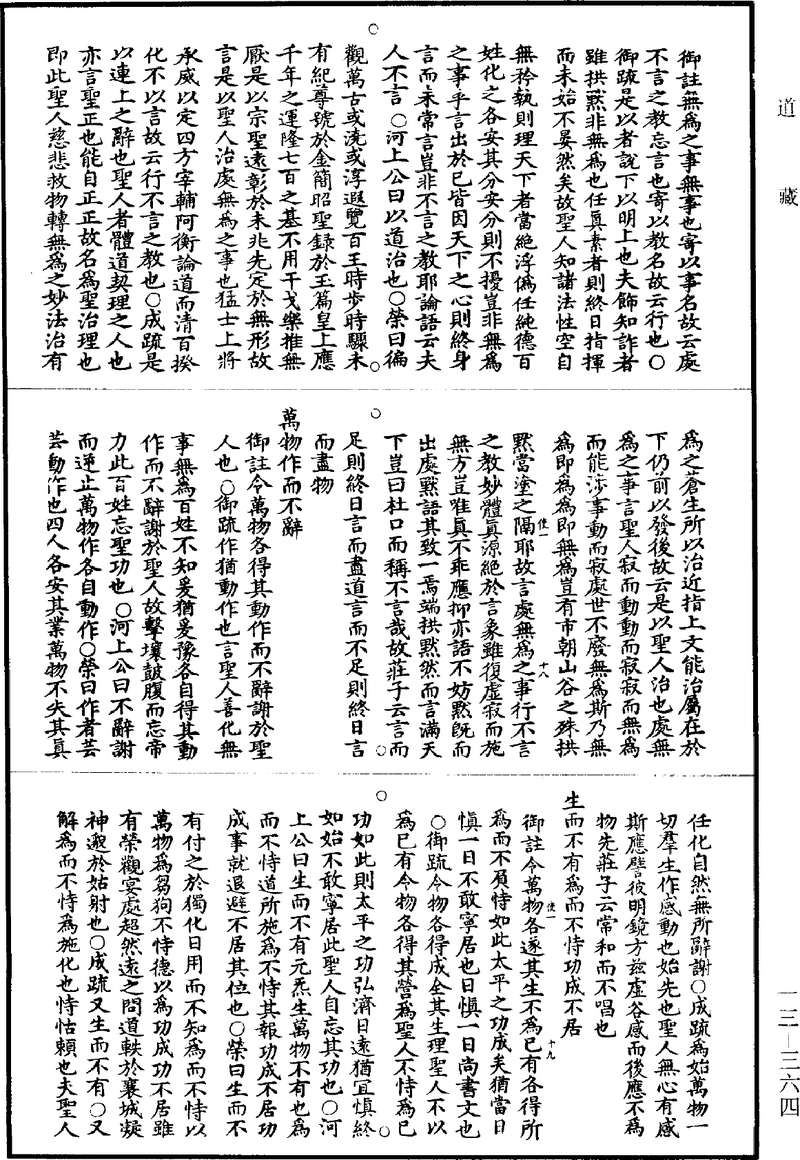 道藏
御註無爲之事無事也寄以事名故云處
不言之教忘言也寄以教名故云行也〇
御疏是以者說下以明上也夫飾知詐者
雖拱黙非無爲也任眞素者則終日指揮
而未始不晏然矣故聖人知諸法性空自
無矜執則理天下者當絶浮僞任純德百
姓化之各安其分安分則不擾豈非無爲
之事乎言出於己皆因天下之心則終身
言而未常言豈非不言之教耶論語云夫
人不言〇河上公曰以道治也〇榮曰徧
觀萬古或澆或淳遐覽百王時步時驟未
有紀尊號於金簡昭聖録於玉篇皇上應
千年之運隆七百之基不用干戈樂推無
厭是以宗聖遠彰於未兆先定於無形故
言是以聖人治處無爲之事也猛士上將
承威以定四方宰輔阿衡論道而清百揆
化不以言故云行不言之教也〇成疏是
以連上之辭也聖人者體道契理之人也
亦言聖正也能自正正故名爲聖治理也
即此聖人慈悲救物轉無爲之妙法治有
爲之蒼生所以治近指上文能治屬在於
下仍前以發後故云是以聖人治也處無
爲之事言聖人寂而動動而寂寂而無爲
而能涉事動而寂處世不廢無爲斯乃無
爲即爲爲即無爲豈有市朝山谷之殊拱
黙當塗之隔耶故言處無爲之事行不言
使一
十八
之教妙體眞源絶於言象雖復虚寂而施
無方豈唯眞不乖應抑亦語不妨黙旣而
出處黙語其致一焉端拱黙然而言滿天
下豈曰杜口而稱不言哉故莊子云言而
足則終日言而盡道言而不足則終日言
而盡物
萬物作而不辭
御註令萬物各得其動作而不辭謝於聖
人也〇御疏作猶動作也言聖人善化無
事無爲百姓不知爰猶爰豫各自得其動
作而不辭謝於聖人故擊壤鼓腹而忘帝
力此百姓忘聖功也〇河上公曰不辭謝
而逆止萬物作各自動作〇榮曰作者芸
芸動作也四人各安其業萬物不失其眞
任化自然無所辭謝〇成疏爲始萬物一
切羣生作感動也始先也聖人無心有感
斯應譬彼明鏡方兹虚谷感而後應不爲
物先莊子云常和而不唱也
生而不有爲而不恃功成不居
御註令萬物各遂其生不爲已有各得所
使一
十九
爲而不負恃如此太平之功成矣猶當日
愼一日不敢寧居也日愼一日尚書文也
〇御疏令物各得成全其生理聖人不以
爲已有令物各得其營爲聖人不恃爲已
功如此則太平之功弘濟日遠猶宜愼終
如始不敢寧居此聖人自忘其功也〇河
上公曰生而不有元炁生萬物不有也爲
而不恃道所施爲不恃其報功成不居功
成事就退避不居其位也〇榮曰生而不
有付之於獨化日用而不知爲而不恃以
萬物爲芻狗不恃德以爲功成功不居雖
有榮觀宴處超然遠之問道軼於襄城凝
神邈於姑射也〇成疏又生而不有〇又
解爲而不恃爲施化也恃怙賴也夫聖人
一三—三六四